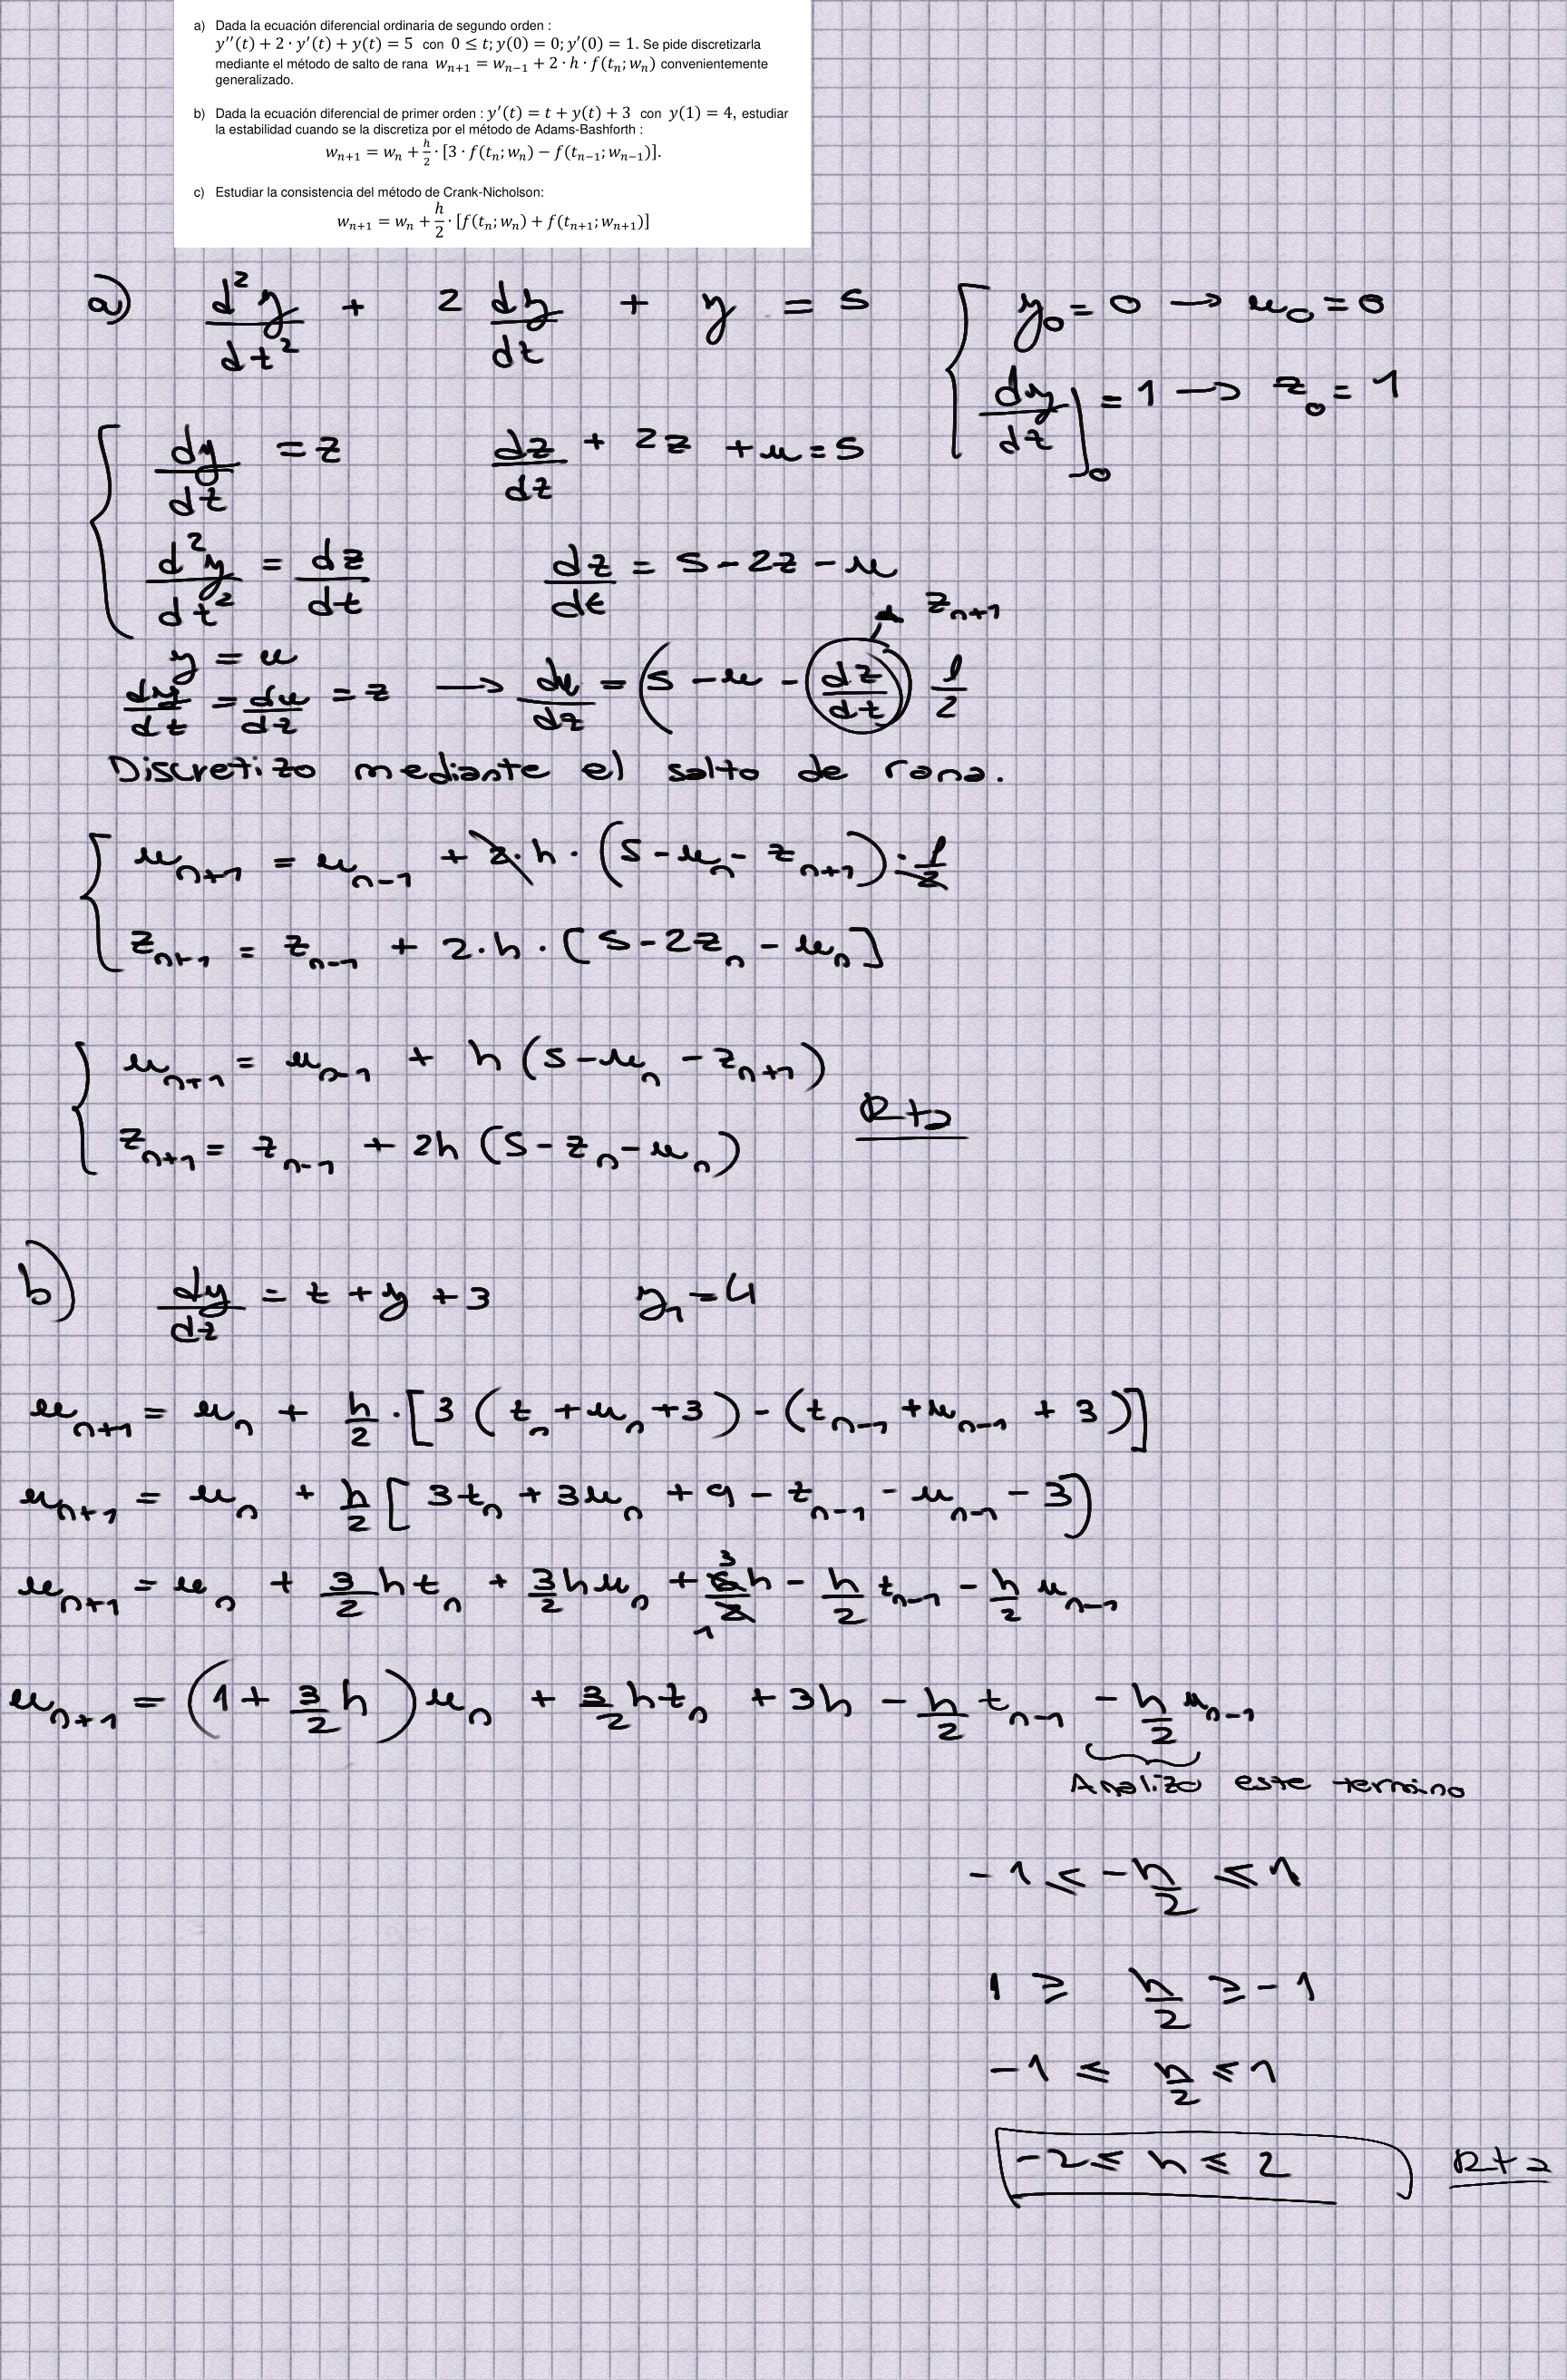 a) Dada la ecuación diferencial ordinaria de segundo orden :
y′′(t) + 2 · y′(t) + y(t) = 5 con 0 ≤ t; y(0) = 0; y′(0) = 1. Se pide discretizarla
mediante el método de salto de rana wₙ₊₁ = wₙ₋₁ + 2 · h · f(tₙ; wₙ) convenientemente
generalizado.
b) Dada la ecuación diferencial de primer orden : y′(t) = t + y(t) + 3 con y(1) = 4, estudiar
la estabilidad cuando se la discretiza por el método de Adams-Bashforth :
wₙ₊₁ = wₙ + h/2 · [3 · f(tₙ; wₙ) − f(tₙ₋₁; wₙ₋₁)].
c) Estudiar la consistencia del método de Crank-Nicholson:
wₙ₊₁ = wₙ + h/2 · [f(tₙ; wₙ) + f(tₙ₊₁; wₙ₊₁)]
a) d²y/dt² + 2 dy/dt + y = 5 { y₀ = 0 → u₀ = 0
dy/dt]₀ = 1 → z₀ = 1
{ dy/dt = z dz/dt + 2z + u = 5
d²y/dt² = dz/dt dz/dt = 5 - 2z - u
zₙ₊₁
y = u
dy/dt = du/dt = z → du/dt = (5 - u - dz/dt) 1/2
Discretizo mediante el salto de rana.
{ uₙ₊₁ = uₙ₋₁ + 2·h·(5 - uₙ - zₙ₊₁)·1/2
zₙ₊₁ = zₙ₋₁ + 2·h·[5 - 2zₙ - uₙ]
{ uₙ₊₁ = uₙ₋₁ + h (5 - uₙ - zₙ₊₁)
zₙ₊₁ = zₙ₋₁ + 2h (5 - zₙ - uₙ) Rta
b) dy/dt = t + y + 3 y₁ = 4
uₙ₊₁ = uₙ + h/2 · [3 (tₙ + uₙ + 3) - (tₙ₋₁ + uₙ₋₁ + 3)]
uₙ₊₁ = uₙ + h/2 [3tₙ + 3uₙ + 9 - tₙ₋₁ - uₙ₋₁ - 3)
uₙ₊₁ = uₙ + 3/2 h tₙ + 3/2 h uₙ + 6/2 h - h/2 tₙ₋₁ - h/2 uₙ₋₁
3
1
uₙ₊₁ = (1 + 3/2 h) uₙ + 3/2 h tₙ + 3h - h/2 tₙ₋₁ - h/2 uₙ₋₁
Analizo este termino
-1 ≤ -h/2 ≤ 1
1 ≥ h/2 ≥ -1
-1 ≤ h/2 ≤ 1
-2 ≤ h ≤ 2 Rta